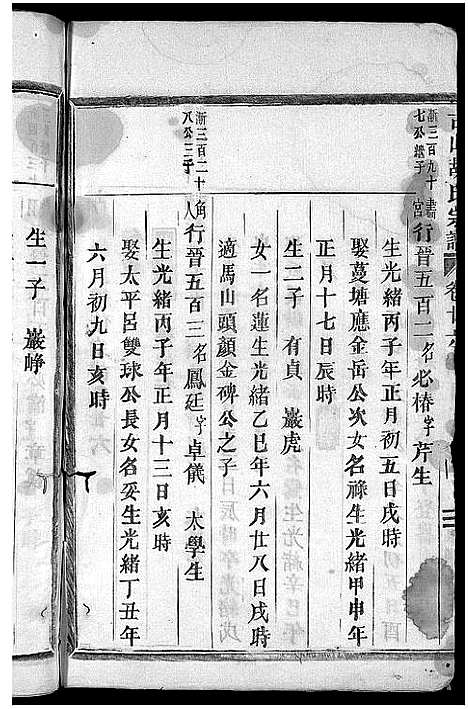 古山胡氏宗譜
卷廿六
漸三百九十七公繼子
書宮
行晉五百二名必椿字芹生
生光緒丙子年正月初五日戌時
娶蔓塘應金岳公次女名祿生光緒甲申年
正月十七日辰時
生二子 有貞 巖虎
女一名蓮生光緒乙巳年六月廿八日戌時
適馬山頭顏金碑公之子
漸三百二十八公三子
角人
行晉五百三名鳳廷字卓儀 太學生
生光緒丙子年正月十三日亥時
娶太平呂雙球公長女名妥生光緒丁丑年
六月初九日亥時
生一子 巖崢